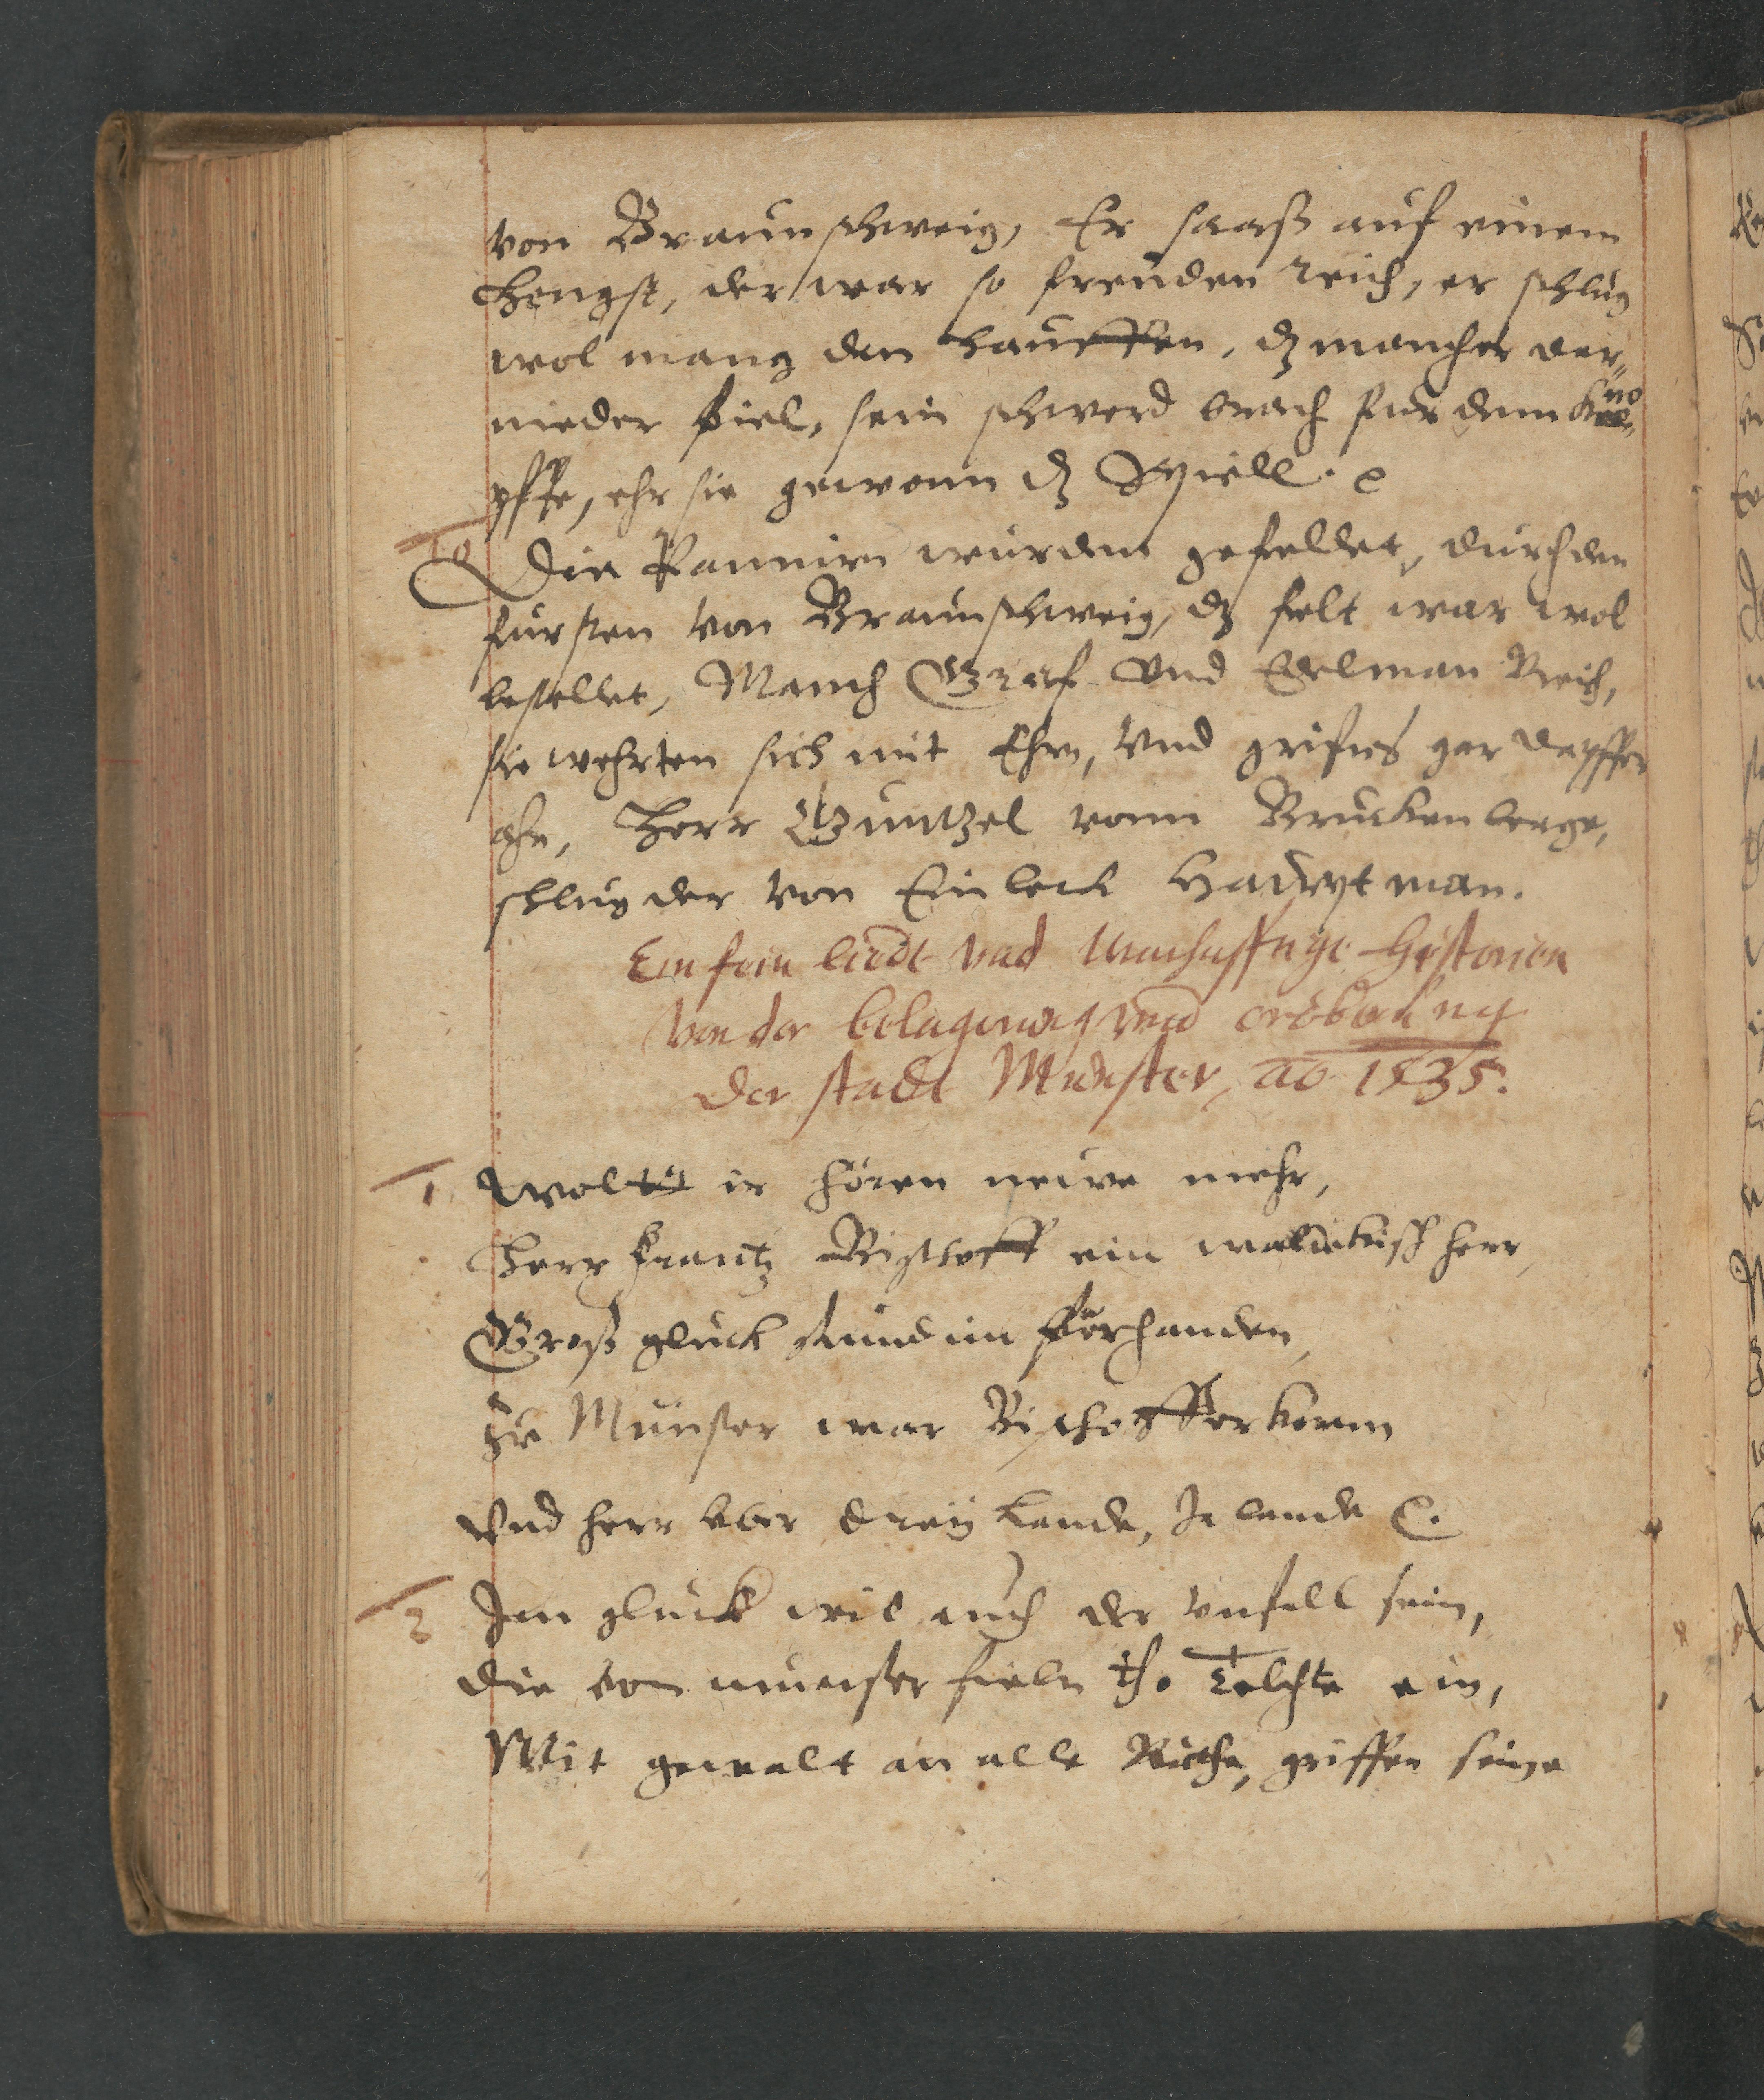 von Braunschweig, Er saaß auf einem
Hengst, der war so freuden reich, er schlug
wol mang den hauffen, dz mancher dar„
nieder fiel, sein schwerd brach fur dem Kno
pffe, ehr sie gewonn dz Spiell. ꝛ
10 Die Pannirn wurden gefellet, durch den
fursten von Braunschweig, dz felt war wol
bestellet, Manch Graf und Edelman Reich,
sie wehrten sich mit Ehrn, Vnd griffens gar dapffer
ahn, Herr Guntzel vonn Bruckenberge,
schlug der von Einbeck Hauptman.
Ein fein liedt vnd Warhafftige Historien
von der belagerung vnd eroberung
der stadt Munster, ao 1535.
1 Wolt ir hören neuwe mehr,
Herr Frantz Bischoff ein waldekisch herr,
Groß gluck stund im forhanden,
Zu Munster war Bischoff erkorn
Vnd herr vber drey Lande, Ja lande ꝛ.
2 Im gluck wil auch der vnfall sein,
die von munster fieln tho Telchte ein,
Mit gewalt an alle Ruche, griffen seine